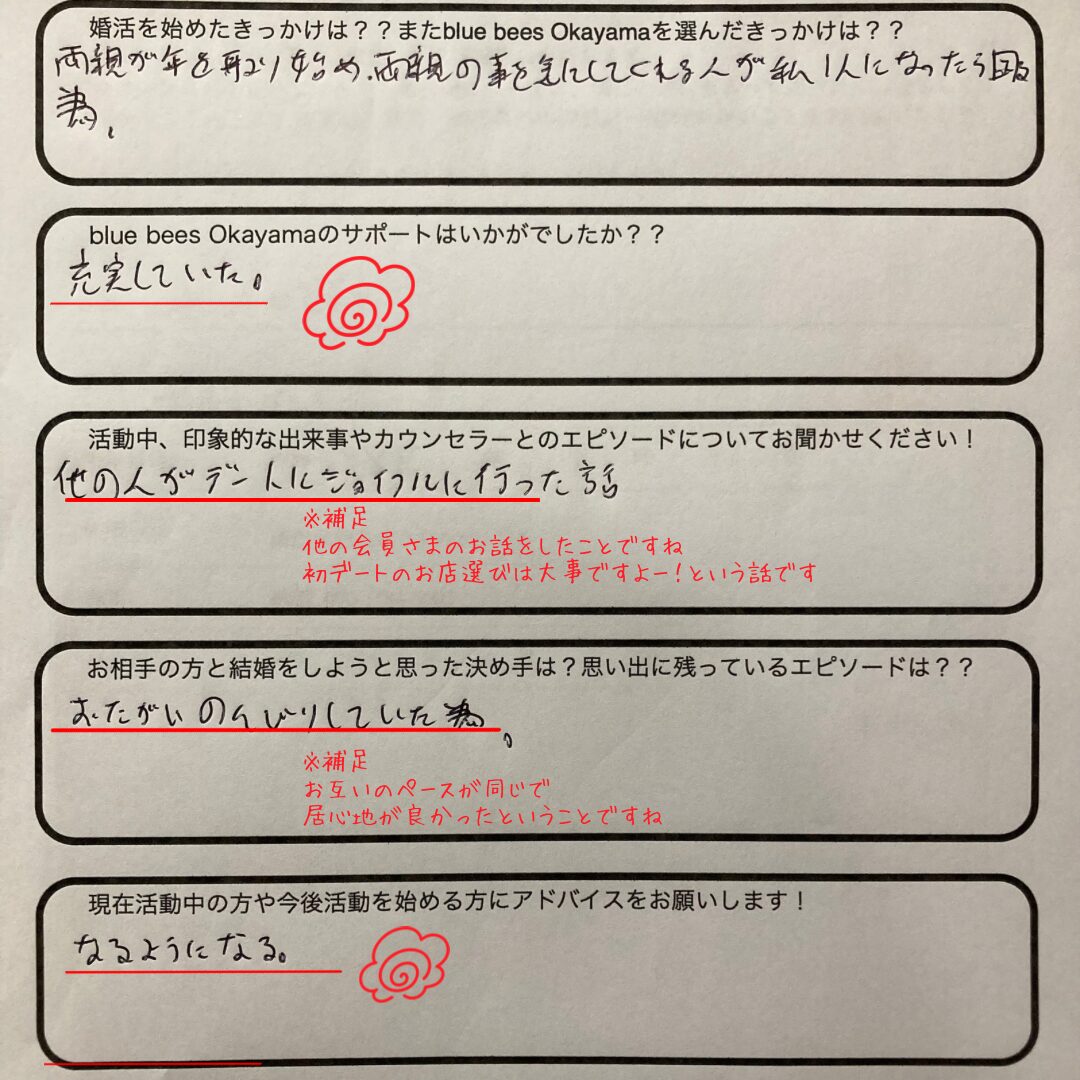 婚活を始めたきっかけは？？またblue bees Okayamaを選んだきっかけは？？
両親が年を取り始め、両親の事を気にしてくれる人が私1人になったら困る
為、
blue bees Okayamaのサポートはいかがでしたか？？
充実していた。
活動中、印象的な出来事やカウンセラーとのエピソードについてお聞かせください！
他の人がデートにジョイフルに行った話
※補足
他の会員さまのお話をしたことですね
初デートのお店選びは大事ですよー！という話です
お相手の方と結婚をしようと思った決め手は？思い出に残っているエピソードは？？
おたがいのんびりしていた為。
※補足
お互いのペースが同じで
居心地が良かったということですね
現在活動中の方や今後活動を始める方にアドバイスをお願いします！
なるようになる。